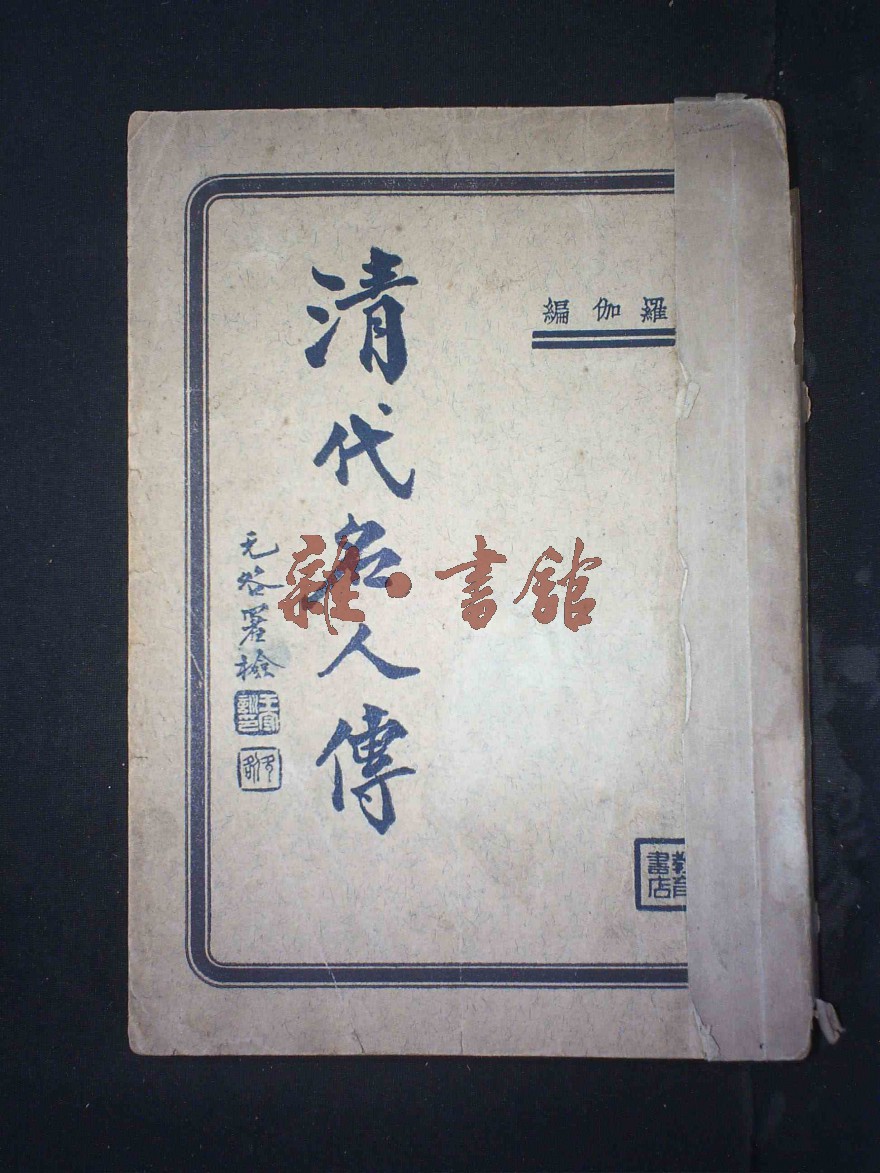 羅伽編
清代名人傳
无咎署檢
教育
書店
雜·書館